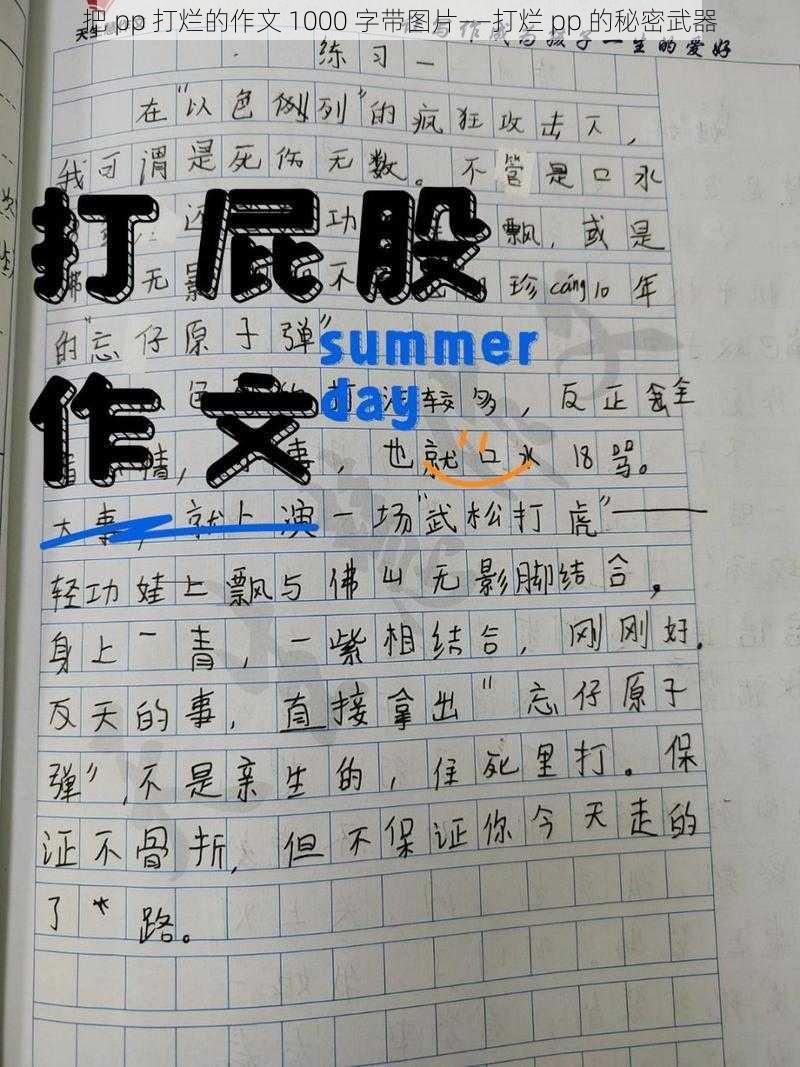 把 pp 打烂的作文 1000 字带图片——打烂 pp 的秘密武器
天生
写作成为孩子一生的爱好
练习一
在"以色例列"的疯狂攻击下，
我可谓是死伤无数。不管是口水
还 功 飘，或是
无影 不 珍cáng10年
的"忘仔原子弹"
打法较多，反正全
情， 事，也就口水18骂。
大事，就上演一场"武松打虎"——
轻功娃上飘与佛山无影脚结合，
身上一青，一紫相结合，刚刚好。
反天的事，直接拿出"忘仔原子
弹"，不是亲生的，往死里打。保
证不骨折，但不保证你今天走的
了*路。
打屁股
作文
summer
day